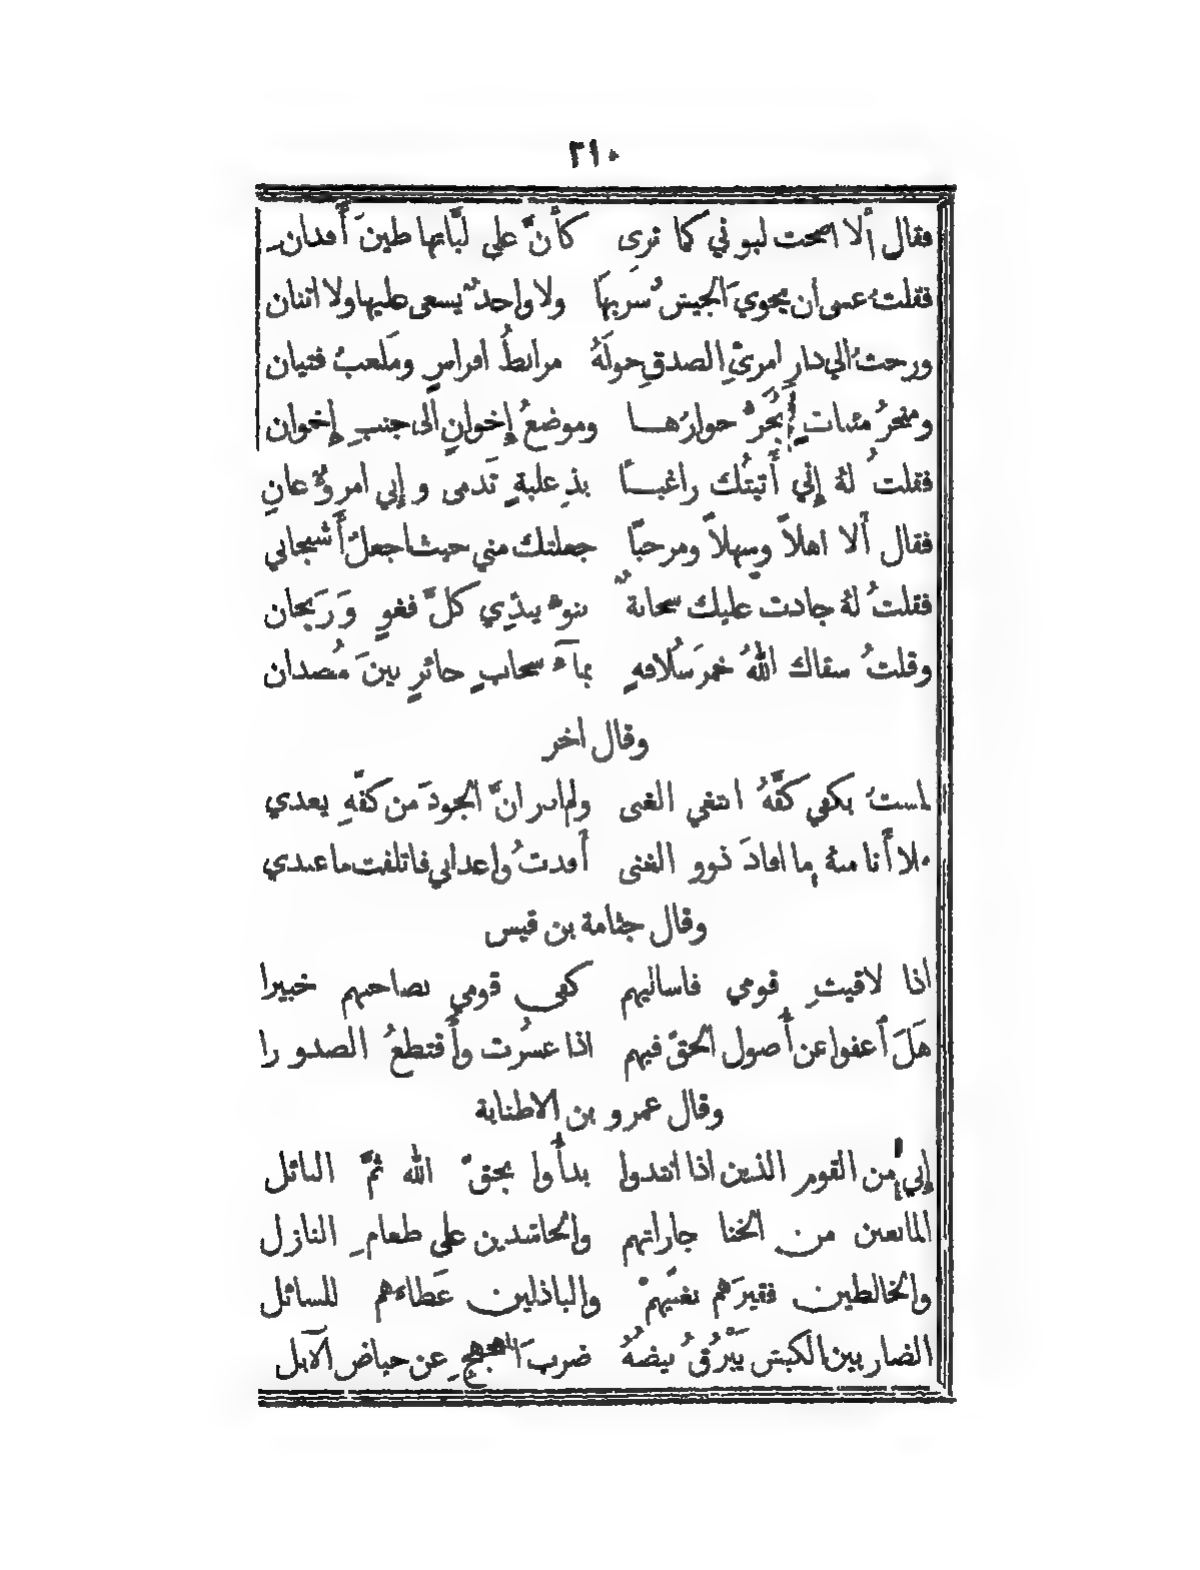 ٢١٠
فقال ألا اضحت لبوني كما ترى كأنّ على لبّاتها طينَ أفدان
فقلتُ عسى ان يحوي الجيشُ سربها ولا واحدٌ يسعى عليها ولا اثنان
ورحتُ الى دار امرئِ الصدقِ حولَهُ مرابطُ افراسٍ وملعبُ فتيان
ومنحرُ مئناتٍ يُجَرّ حوارُهـا وموضعُ إخوانٍ الى جنبِ إخوان
فقلتُ لهُ إنّي أتيتُك راغبـاً بذِعلبةٍ تَدمى و إني امروءٌ عانِ
فقال ألا اهلاً وسهلاً ومرحباً جعلتك مني حيث اجعلُ أشجاني
فقلتُ لهُ جادت عليك سحابةٌ بنوءٍ يندّي كلَّ فغوٍ وَرَيحان
وقلتُ سقاك اللهُ خمرَ سُلافةٍ بماءَ سحابٍ حائرٍ بينَ مُصدان
وقال اخر
لمستُ بكفي كفَّهُ ابتغي الغنى ولم ادر انَّ الجودَ من كفّهِ يعدي
فلا أنا منهُ ما افادَ ذوو الغنى أفدتُ واعداني فاتلفت ما عندي
وقال جثامة بن قيس
اذا لاقيتِ قومي فاساليهم كفى قومي بصاحبهم خبيرا
هَلَ أعفوا عن أُصول الحقّ فيهم اذا عسُرت وأقتطعُ الصدورا
وقال عمرو بن الاطنابة
إني من القوم الذين اذا انتدوا بدأُوا بحقّ الله ثمَّ النائل
المانعين من الخنا جاراتهم والحاشدين على طعامِ النازل
والخالطين فقيرَهم بغنيّهمْ والباذلين عَطاءهم للسائل
الضاربين الكبش يَبْرُقُ بيضُهُ ضربَ المهجهجِ عن حياض الآبل